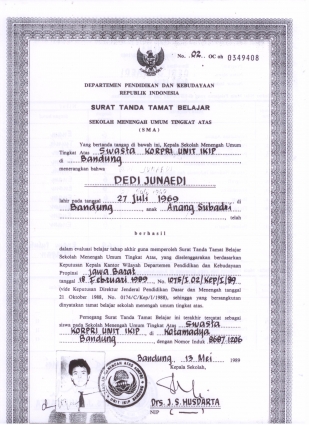 No. 02 OC oh 0349408
DEPARTEMEN PENDIDIKAN DAN KEBUDAYAAN
REPUBLIK INDONESIA
SURAT TANDA TAMAT BELAJAR
SEKOLAH MENENGAH UMUM TINGKAT ATAS
(SMA)
Yang bertanda tangan di bawah ini, Kepala Sekolah Menengah Umum
Tingkat Atas Swasta KORPRI UNIT IKIP
di Bandung
menerangkan bahwa
DEDI JUNAEDI
lahir pada tanggal 27 Juli 1969 di
Bandung, anak Anang Subadri
telah
berhasil
dalam evaluasi belajar tahap akhir guna memperoleh Surat Tanda Tamat Belajar
Sekolah Menengah Umum Tingkat Atas, yang diselenggarakan berdasarkan
Keputusan Kepala Kantor Wilayah Departemen Pendidikan dan Kebudayaan
Propinsi Jawa Barat
tanggal 18 Februari 1989, No. 1075/I.02/KEP/I/89
(vide Keputusan Direktur Jenderal Pendidikan Dasar dan Menengah tanggal
21 Oktober 1988, No. 0174/C/Kep/I/1988), sehingga yang bersangkutan
dinyatakan tamat belajar sekolah menengah umum tingkat atas.
Pemegang Surat Tanda Tamat Belajar ini terakhir tercatat sebagai
siswa pada Sekolah Menengah Umum Tingkat Atas Swasta
KORPRI UNIT IKIP di Kotamadya
Bandung, dengan Nomor Induk 8687 1206
Bandung, 13 Mei 1989
Kepala Sekolah,
Drs. J. S. HUSDARTA
NIP (